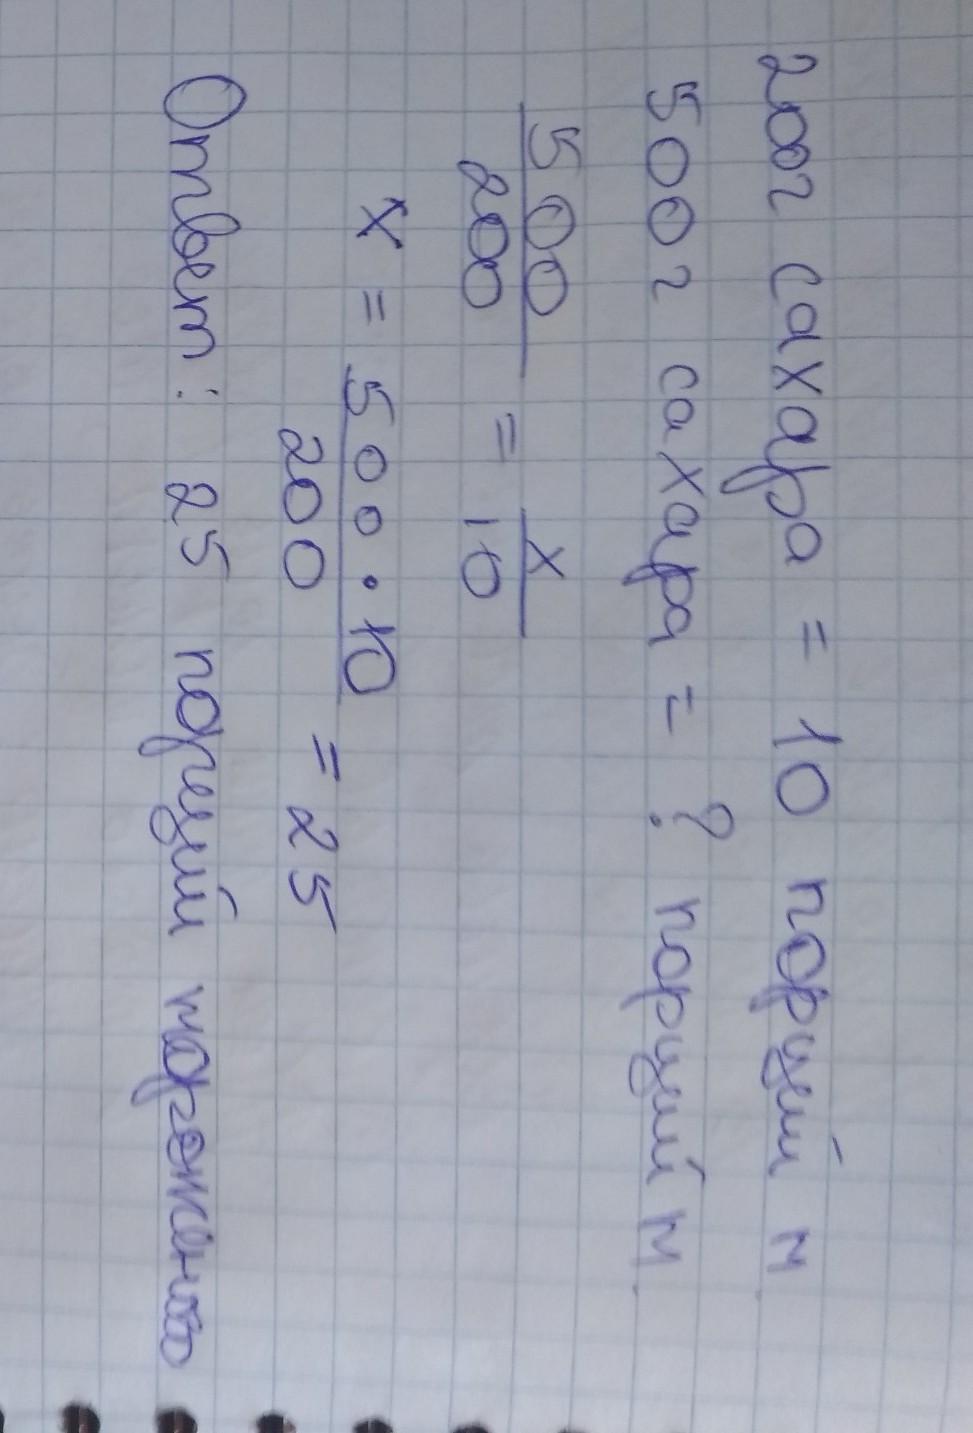 200г сахара = 10 порций м
500г сахара = ? порций м.
500/200 = x/10
x = 500·10/200 = 25
Ответ: 25 порций мороженого